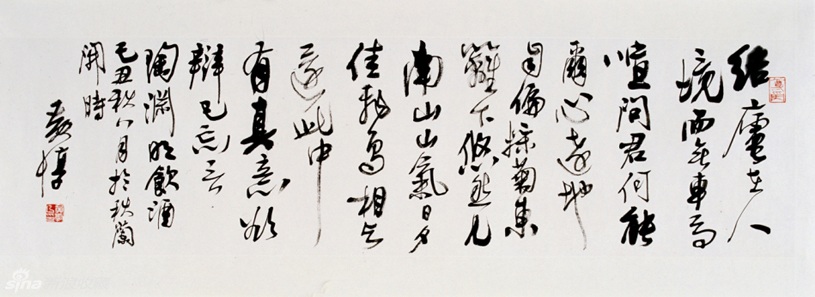 結廬在人
境而無車馬
喧問君何能
爾心遠地
自偏採菊東
籬下悠然見
南山山氣日夕
佳飛鳥相与
還此中
有真意欲
辯已忘言
陶淵明飲酒
己丑秋八月於秋蘭
開時
sina